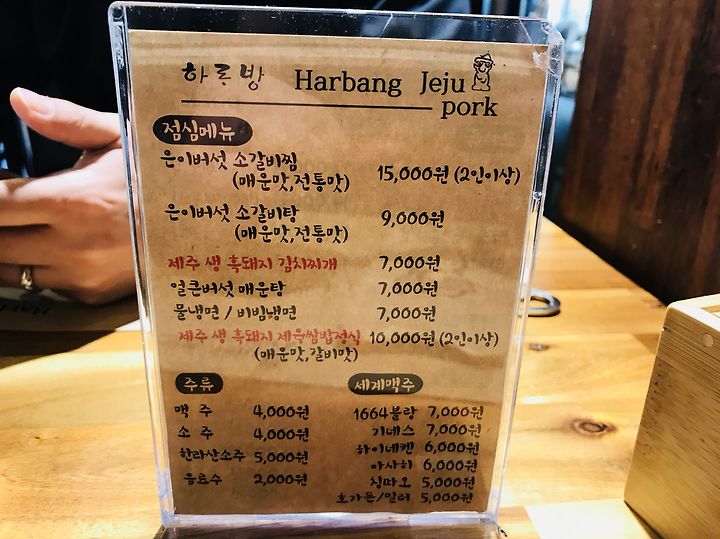 하루방 Harbang Jeju
pork
점심메뉴
은이버섯 소갈비찜
(매운맛,전통맛) 15,000원 (2인이상)
은이버섯 소갈비탕 9,000원
(매운맛,전통맛)
제주 생 흑돼지 김치찌개 7,000원
얼큰버섯 매운탕 7,000원
물냉면 / 비빔냉면 7,000원
제주 생 흑돼지 제육쌈밥정식 10,000원 (2인이상)
(매운맛,갈비맛)
주류 세계맥주
맥 주 4,000원 1664블랑 7,000원
소 주 4,000원 기네스 7,000원
한라산소주 5,000원 하이네켄 6,000원
음료수 2,000원 아사히 6,000원
칭따오 5,000원
호가든/밀러 5,000원